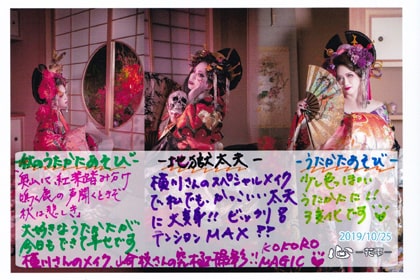 秋のうたかたあそび~
奥山に紅葉踏み分け
鳴く鹿の声聞くときぞ
秋は悲しき。
大好きなうたかたが
今日もできて幸せです。
横川さんのメイク 山崎枝さんの究極撮影!!
-地獄太夫-
横川さんのスペシャルメイク
で、私でも、かっこいい太夫
に大変身!! ビックリ
テンションMAX??
KOKORO
MAGIC
-うたかたあそび-
少し色っぽい
うたかたに!!
変化です
2019/10/25
心-花雫-